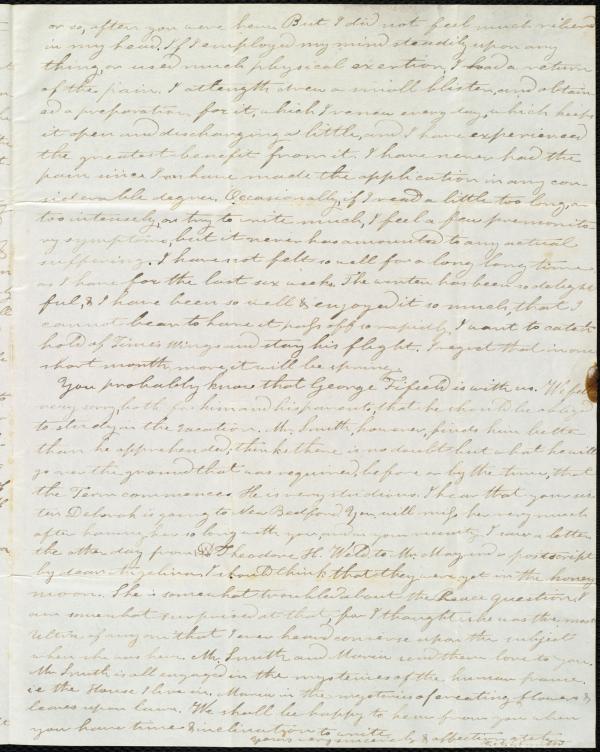 or so, after you were here. But I did not feel much relieved
in my head. If I employed my mind steadily upon any
thing, or used much physical exertion, I had a return
of the pain. I at length drew a small blister, and obtain
ed a preparation for it, which I renew every day, which keeps
it open and discharging a little, and I have experienced
the greatest benefit from it. I have never had the
pain since I have made the application in any con
siderable degree. Occasionally, if I read a little too long, or
too intensely, or try to write much, I feel a few premonito
ry symptoms, but it never has amounted to any actual
suffering. I have not felt so well for a long, long time
as I have for the last six weeks. The winter has been so delight
ful, & I have been so well & enjoyed it so much, that I
cannot bear to have it pass off so rapidly, I want to catch
hold of Time's wings and stay his flight. I regret that in one
short month more, it will be spring.
You probably know that George Fifield is with us. We felt
very sorry, both for him and his parents, that he should be obliged
to study in the vacation. Mr. Smith, however, finds him better
than he apprehended; thinks there is no doubt but what he will
go over the ground that was required, before or by the time, that
the Term commences. He is very studious. I hear that your sis
ter Deborah is going to New Bedford. You will miss her very much
after having her so long with you, and in your vicinity. I saw a letter
the other day from Theodore H. Weld to Mr. May, and a postscript
by dear Angelina. I should think that they were yet in the honey
moon. She is somewhat troubled about the Peace question. I
am somewhat surprised at that, for I thought she was the most
ultra of any one that I ever heard converse upon the subject
when she was here. Mr. Smith and Maria send their love to you.
Mr. Smith is all engaged in the mysteries of the human frame.
ie the House I live in. Maria in the mysteries of creating flowers &
leaves upon lawn. We shall be happy to hear from you when
you have time & inclination to write.
Yours very sincerely & affectionately